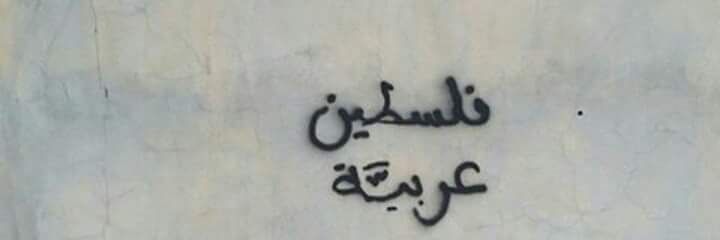 فلسطين
عربيَّة